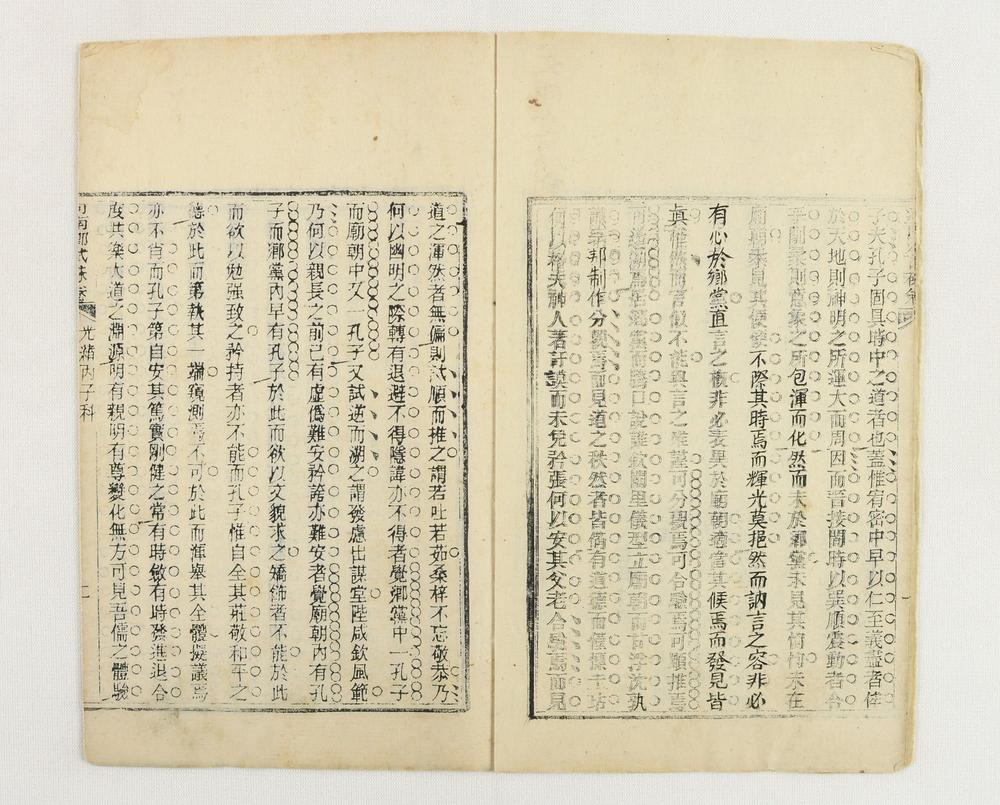 子夫孔子固具時中之道者也蓋惟宥密中早以仁至義盡者倅
於天地則神明之所運大而周因而晉接間時以巽順震動者合
之所包渾而化然而未於鄉黨未見其恂恂未在
廟朝未見其便便不際其時焉而輝光莫挹然而訥言之容非必
有心於鄉黨直言之概非必表異於廟朝適當其候焉而發見皆
眞惟然而言似不能與言之唯謹可分擬焉可合驗焉可類推焉
邦制作分觀焉而見道之秩然者皆備有道德而僅
何以格夫神人著訏謨而未免矜張何以安其父老合驗焉而見
道之渾然者無偏則試順而推之謂若吐若茹桑梓不忘敬恭乃
何以國明之際轉有退避不得隱諱亦不得者覺鄉黨中一孔子
而廟朝中又一孔子又試逆而溯之謂發慮出謀堂陛咸欽風範
乃何以親長之前己有虛僞難安矜誇亦難安者覺廟朝內有孔
子而鄉黨內早有孔子於此而欲以文貌求之矯飾者不能於此
而欲以勉强致之矜持者亦不能而孔子惟自全其莊敬和平之
德於此而第執其一端窺測焉不可於此而渾舉其全體擬議焉
亦不肖而孔子第自安其篤實剛健之常有時斂有時發進退合
度其樂水道之淵源明有親明有尊變化無方可見吾儒之體驗
光緒丙子科
二